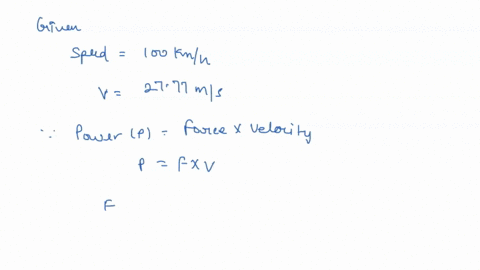 Given
Speed = 100 Km/h
V = 27.77 m/s
∵ Power (P) = Force × Velocity
P = F × V
F